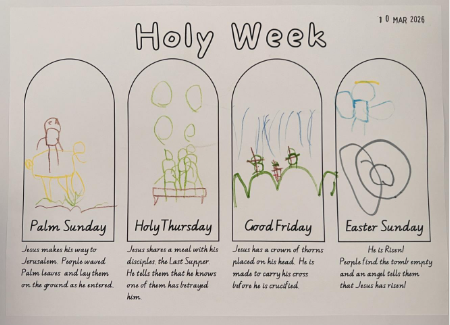 Holy Week
10 MAR 2026
Palm Sunday
Jesus makes his way to
Jerusalem. People waved
Palm leaves and lay them
on the ground as he entered.
Holy Thursday
Jesus shares a meal with his
disciples, the Last Supper.
He tells them that he knows
one of them has betrayed
him.
Good Friday
Jesus has a crown of thorns
placed on his head. He is
made to carry his cross
before he is crucified.
Easter Sunday
He is Risen!
People find the tomb empty
and an angel tells them
that Jesus has risen!